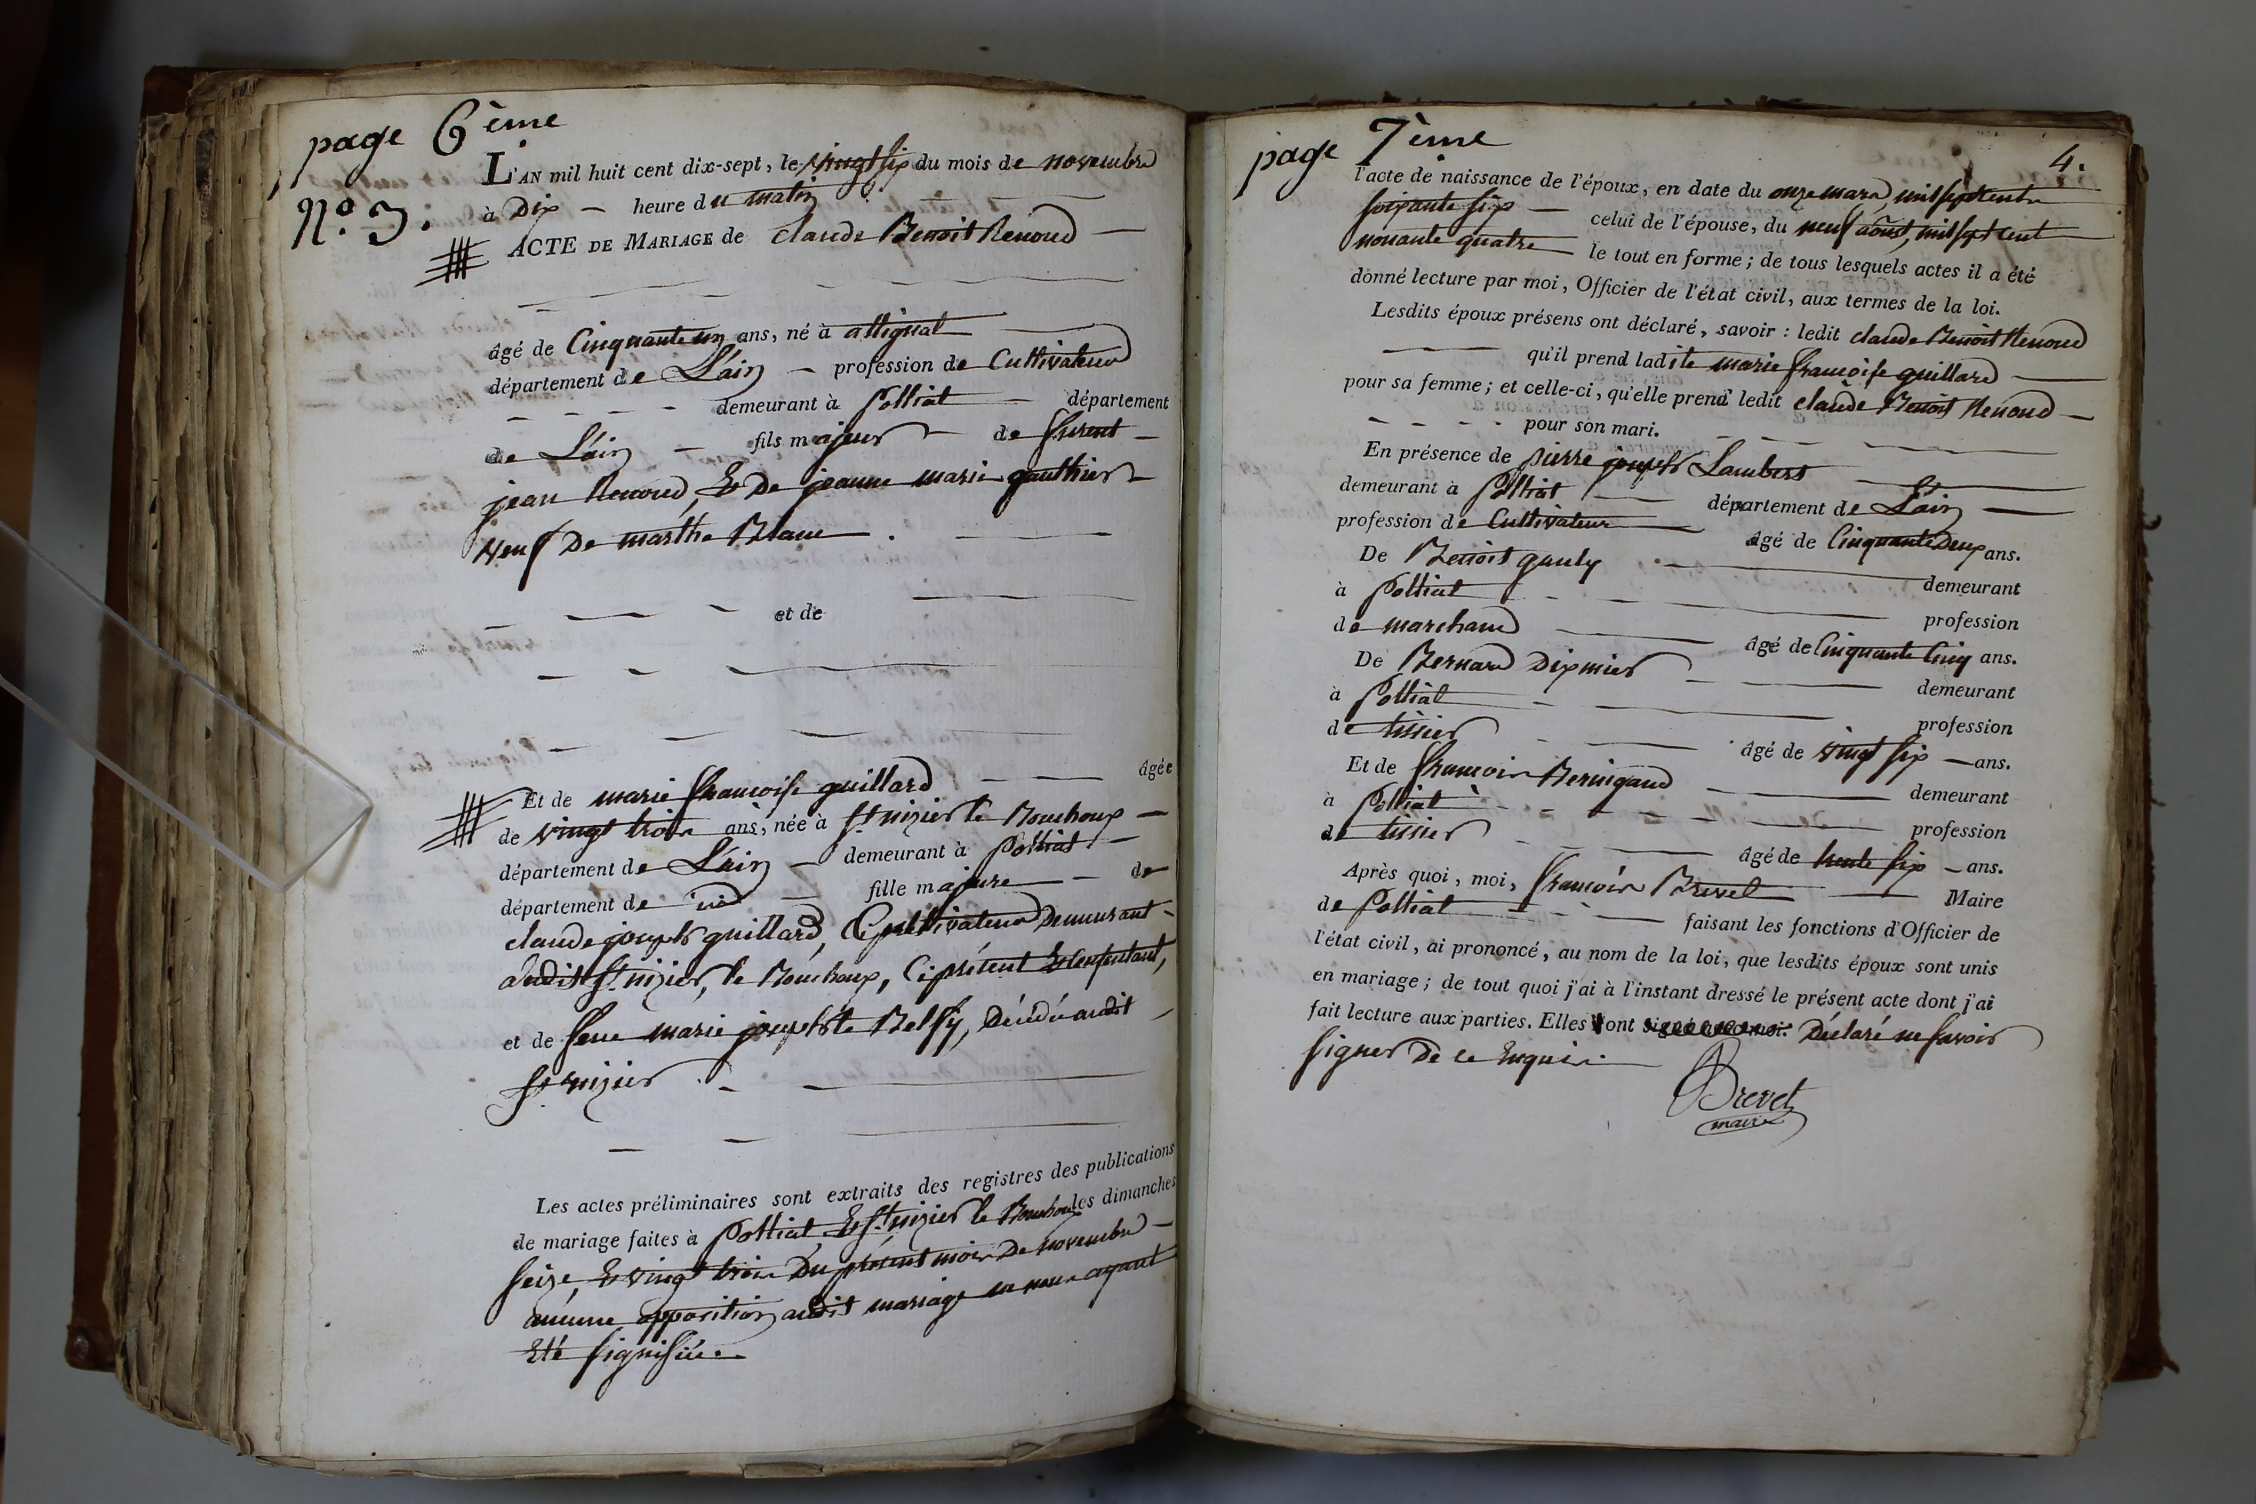 page 6ème
L'AN mil huit cent dix-sept, le vingt six du mois de novembre
N.º 3.
à Dix — heure du matin
ACTE DE MARIAGE de claude Benoit Renoud —
âgé de Cinquante un ans, né à attignat
département de L'ain — profession de Cultivateur
demeurant à Polliat — département
de L'ain — fils majeur — de furent —
jean Renoud, & De jeanne marie gauthier —
Veuf De marthe Blanc .
et de
Et de marie francoise guillard — âgée
de vingt trois ans, née à St. nizier le Bouchoux —
département de L'ain — demeurant à Polliat —
département de id — fille majeure — de
claude joseph guillard, Cultivateur Demeurant -
audit St. nizier, le Bouchoux, Ci présent & Consentant,
et de feue marie josephte Belfy, Décédée audit
St. nizier
Les actes préliminaires sont extraits des registres des publications
de mariage faites à Polliat, & St. nizier le Bouchoux les dimanches
seize, & vingt trois Du présent mois De novembre —
aucune opposition audit mariage ne nous ayant
Eté signifiée.
page 7ème
4.
l'acte de naissance de l'époux, en date du onze mars, mil sept cent
soixante six — celui de l'épouse, du neuf août, mil sept cent
nonante quatre — le tout en forme ; de tous lesquels actes il a été
donné lecture par moi, Officier de l'état civil, aux termes de la loi.
Lesdits époux présens ont déclaré, savoir : ledit claude Benoit Renoud
— qu'il prend ladite marie francoise guillard —
pour sa femme ; et celle-ci, qu'elle prend ledit claude Benoit Renoud —
pour son mari.
En présence de pierre joseph Lambert
demeurant à Polliat — département de L'ain —
profession de Cultivateur — âgé de Cinquante Deux ans.
De Benoit gauly — demeurant
à Polliat — profession
de marchand — âgé de Cinquante Cinq ans.
De Bernard Dixmier — demeurant
à Polliat — profession
de tissier — âgé de vingt six — ans.
Et de francois Beringaud — demeurant
à Polliat — profession
de tissier — âgé de trente six — ans.
Après quoi, moi, francois Brevet — Maire
de Polliat — faisant les fonctions d'Officier de
l'état civil, ai prononcé, au nom de la loi, que lesdits époux sont unis
en mariage ; de tout quoi j'ai à l'instant dressé le présent acte dont j'ai
fait lecture aux parties. Elles ont signé avec moi. Déclaré ne savoir
signer De ce Enquis.
Brevet
maire